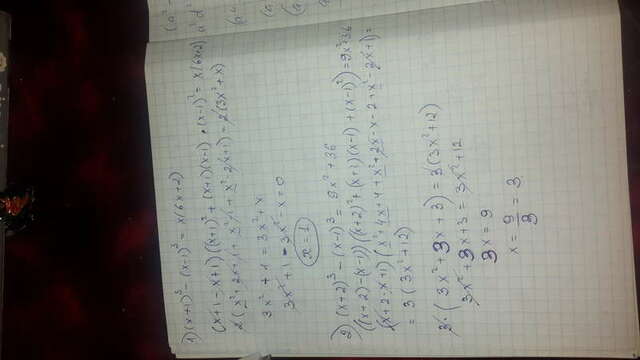 1) (x+1)³ - (x-1)³ = x(6x+2)
(x+1-x+1)((x+1)²+(x+1)(x-1)+(x-1)²) = x(6x+2)
2(x²+2x+1+x²-1+x²-2x+1) = 2(3x²+x)
3x²+1 = 3x²+x
3x²+1-3x²-x=0
x=1
2) (x+2)³ - (x-1)³ = 9x²+36
((x+2)-(x-1))((x+2)²+(x+2)(x-1)+(x-1)²) = 9x²+36
(x+2-x+1)(x²+4x+4+x²+2x-x-2+x²-2x+1) =
= 3(3x²+12)
3·(3x²+3x+3) = 3(3x²+12)
3x²+3x+3 = 3x²+12
3x = 9
x = 9/3 = 3